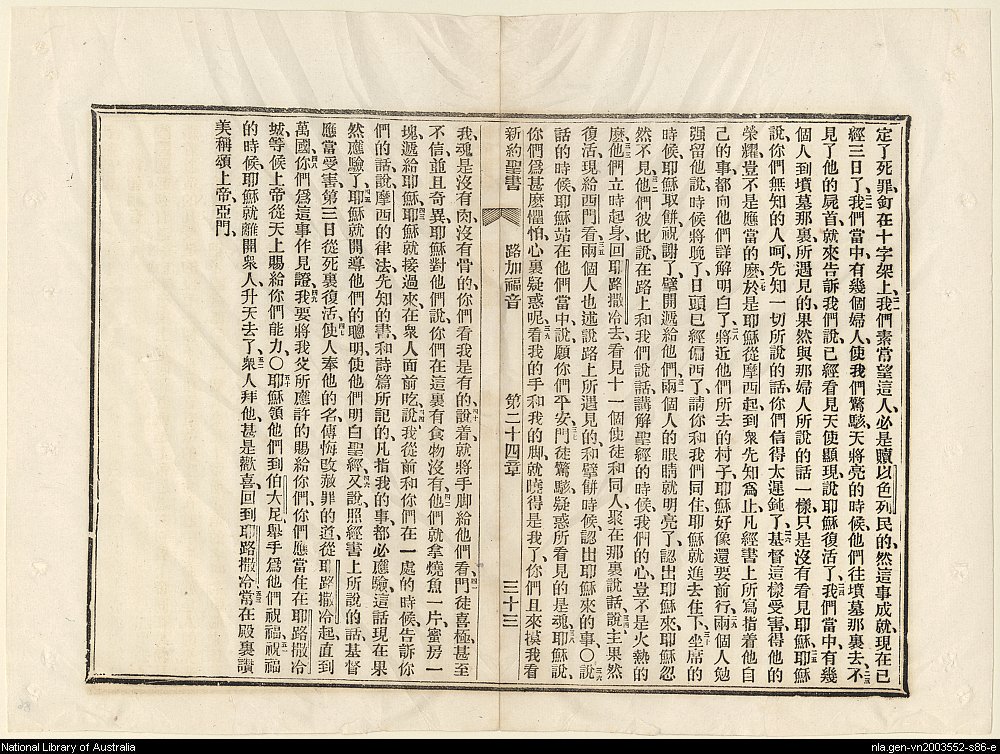 定了死罪、釘在十字架上、我們素常望這人、必是贖以色列民的、然這事成就、現在已
經三日了、我們當中、有幾個婦人、使我們驚駭、天將亮的時候、他們往墳墓那裏去、不
見了他的屍首、就來告訴我們說、已經看見天使顯現、說耶穌復活了、我們當中、有幾
個人、到墳墓那裏、所遇見的、果然與那婦人所說的話一樣、只是沒有看見耶穌、耶穌
說、你們無知的人呵、先知一切所說的話、你們信得太遲鈍了、基督這樣受害、得他的
榮耀、豈不是應當的麽、於是耶穌從摩西起、到衆先知爲止、凡經書上所寫指着他自
己的事、都向他們詳解明白了、將近他們所去的村子、耶穌好像還要前行、兩個人勉
强留他說、時候將晚了、日頭已經偏西了、請你和我們同住、耶穌就進去住下、坐席的
時候、耶穌取餅、祝謝了、擘開遞給他們、兩個人的眼睛就明亮了、認出耶穌來、耶穌忽
然不見、他們彼此說、在路上和我們說話、講解聖經的時候、我們的心、豈不是火熱的
麽、他們立時起身、回耶路撒冷去、看見十一個使徒和同人、聚在那裏說話、說主果然
復活、現給西門看、兩個人也述說路上所遇見的、和擘餅時候、認出耶穌來的事、〇說
話的時候、耶穌站在他們當中說、願你們平安、門徒驚駭疑惑、所看見的是魂、耶穌說、
你們爲甚麽懼怕、心裏疑惑呢、看我的手、和我的脚、就曉得是我了、你們且來摸我看
新約聖書 路加福音 第二十四章 三十三
我、魂是沒有肉沒有骨的、你們看我是有的、說着就將手脚給他們看、門徒喜極、甚至
不信、並且奇異、耶穌對他們說、你們在這裏有食物沒有、他們就拿燒魚一片、蜜房一
塊、遞給耶穌、耶穌就接過來、在衆人面前吃、說、我從前和你們在一處的時候、告訴你
們的話說、摩西的律法、先知的書、和詩篇所記的、凡指我的事、都必應驗、這話現在果
然應驗了、耶穌就開導他們的聰明、使他們明白聖經、又說、照經書上所說的話、基督
應當受害、第三日從死裏復活、使人奉他的名、傳悔改赦罪的道、從耶路撒冷起、直到
萬國、你們爲這事作見證、我要將我父所應許的賜給你們、你們應當住在耶路撒冷
城、等候上帝從天上賜給你們能力、〇耶穌領他們到伯大尼、舉手爲他們祝福、祝福
的時候、耶穌就離開衆人、升天去了、衆人拜他、甚是歡喜、回到耶路撒冷、常在殿裏讚
美稱頌上帝、亞門、
National Library of Australia
nla.gen-vn2003552-s86-e